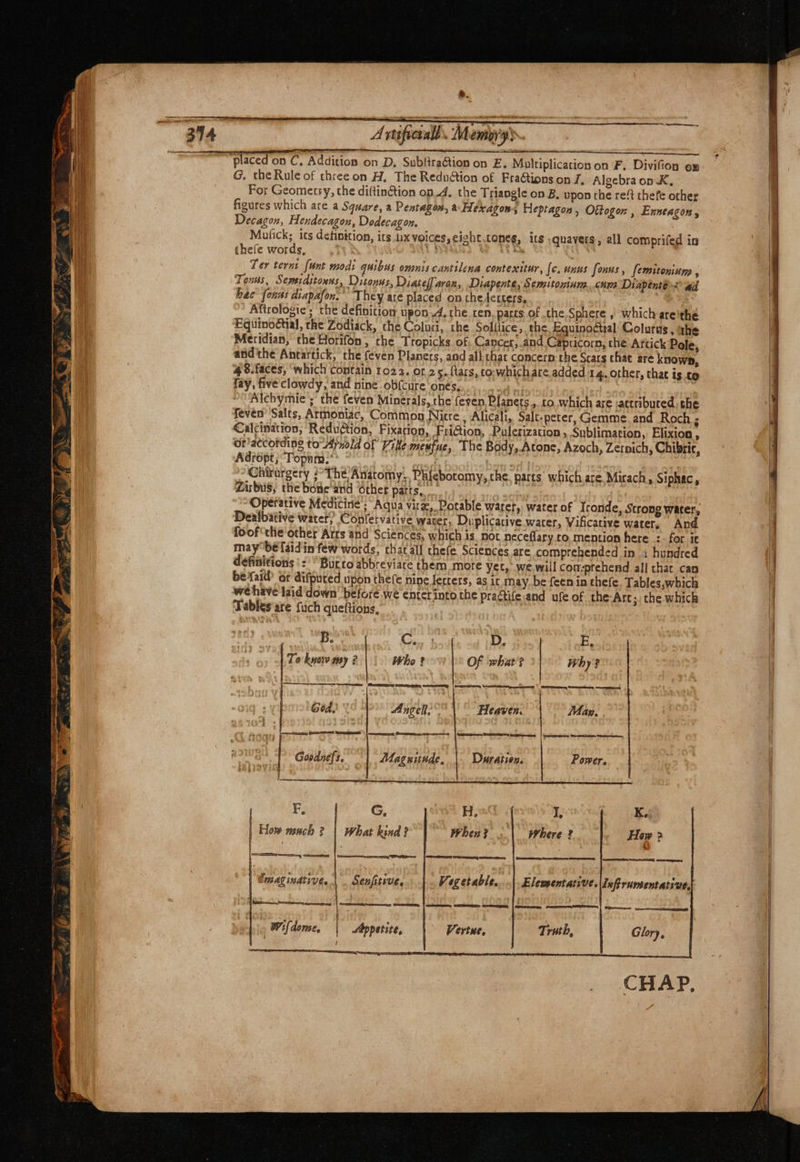 374 Artificiall Memory.
placed on C. Addition on D. Subſtraction on E. Multiplication on F. Diviſion on
G. the Rule of three on H. The Reduction of Fractions on I. Algebra on K.
For Geometry, the diſtinction on A. the Triangle on B. upon the reſt theſe other
figures which are a Square, a Pentagon, a Hexagon, Heptagon, Octogon, Enneagon,
Decagon, Hendecagon, Dodecagon.
Muſick; its definition, its ſix voices, eight tones, its quavers, all compriſed in
theſe words,
Ter terni ſunt modi quibus omnis cantilena contexitur, ſc. unus ſonus, ſemitonium,
Tonus, Semiditonus, Ditonus, Diateſſaron, Diapente, Semitonium cum Diapente ad
hæc ſonus diapaſon. They are placed on the letters.
Aſtrologie; the definition upon A. the ten parts of the Sphere, which are the
Equinoctial, the Zodiack, the Coluri, the Solſtice, the Equinoctial Colurus, the
Meridian, the Horiſon, the Tropicks of Cancer, and Capricorn, the Artick Pole,
and the Antartick, the ſeven Planets, and all that concern the Stars that are known,
48. faces, which contain 1023. or 25. ſtars, to which are added 14. other, that is to
ſay, five clowdy, and nine obſcure ones.
Alchymie; the ſeven Minerals, the ſeven Planets, to which are attributed the
ſeven Salts, Armoniac, Common Nitre, Alicali, Salt-peter, Gemme and Roch;
Calcination, Reduction, Fixation, Friction, Pulerization, Sublimation, Elixion,
or according to Arnold of Ville menſue, The Body, Atone, Azoch, Zernich, Chibrit,
Adropt, Topum.
Chirurgery; The Anatomy, Phlebotomy, the parts which are Mirach, Siphac,
Zirbus, the bone and other parts.
Operative Medicine; Aqua vitæ, Potable water, water of Ironde, Strong water,
Dealbative water, Conſervative water, Duplicative water, Vificative water. And
ſo of the other Arts and Sciences, which is not neceſſary to mention here: for it
may be ſaid in few words, that all theſe Sciences are comprehended in a hundred
definitions: But to abbreviate them more yet, we will comprehend all that can
be ſaid or diſputed upon theſe nine letters, as it may be ſeen in theſe Tables, which
we have laid down before we enter into the practiſe and uſe of the Art; the which
Tables are ſuch queſtions,
B. C. D. E.
To know my? Who? Of what? Why?
God. Angell. Heaven. Man.
Goodneſs. Magnitude. Duration. Power.
F. G. H. I. K.
How much? What kind? When? Where? How?
Imaginative. Senſitive. Vegetable. Elementative. Inſtrumentative.
Wiſdome. Appetite. Vertue. Truth. Glory.
CHAP.